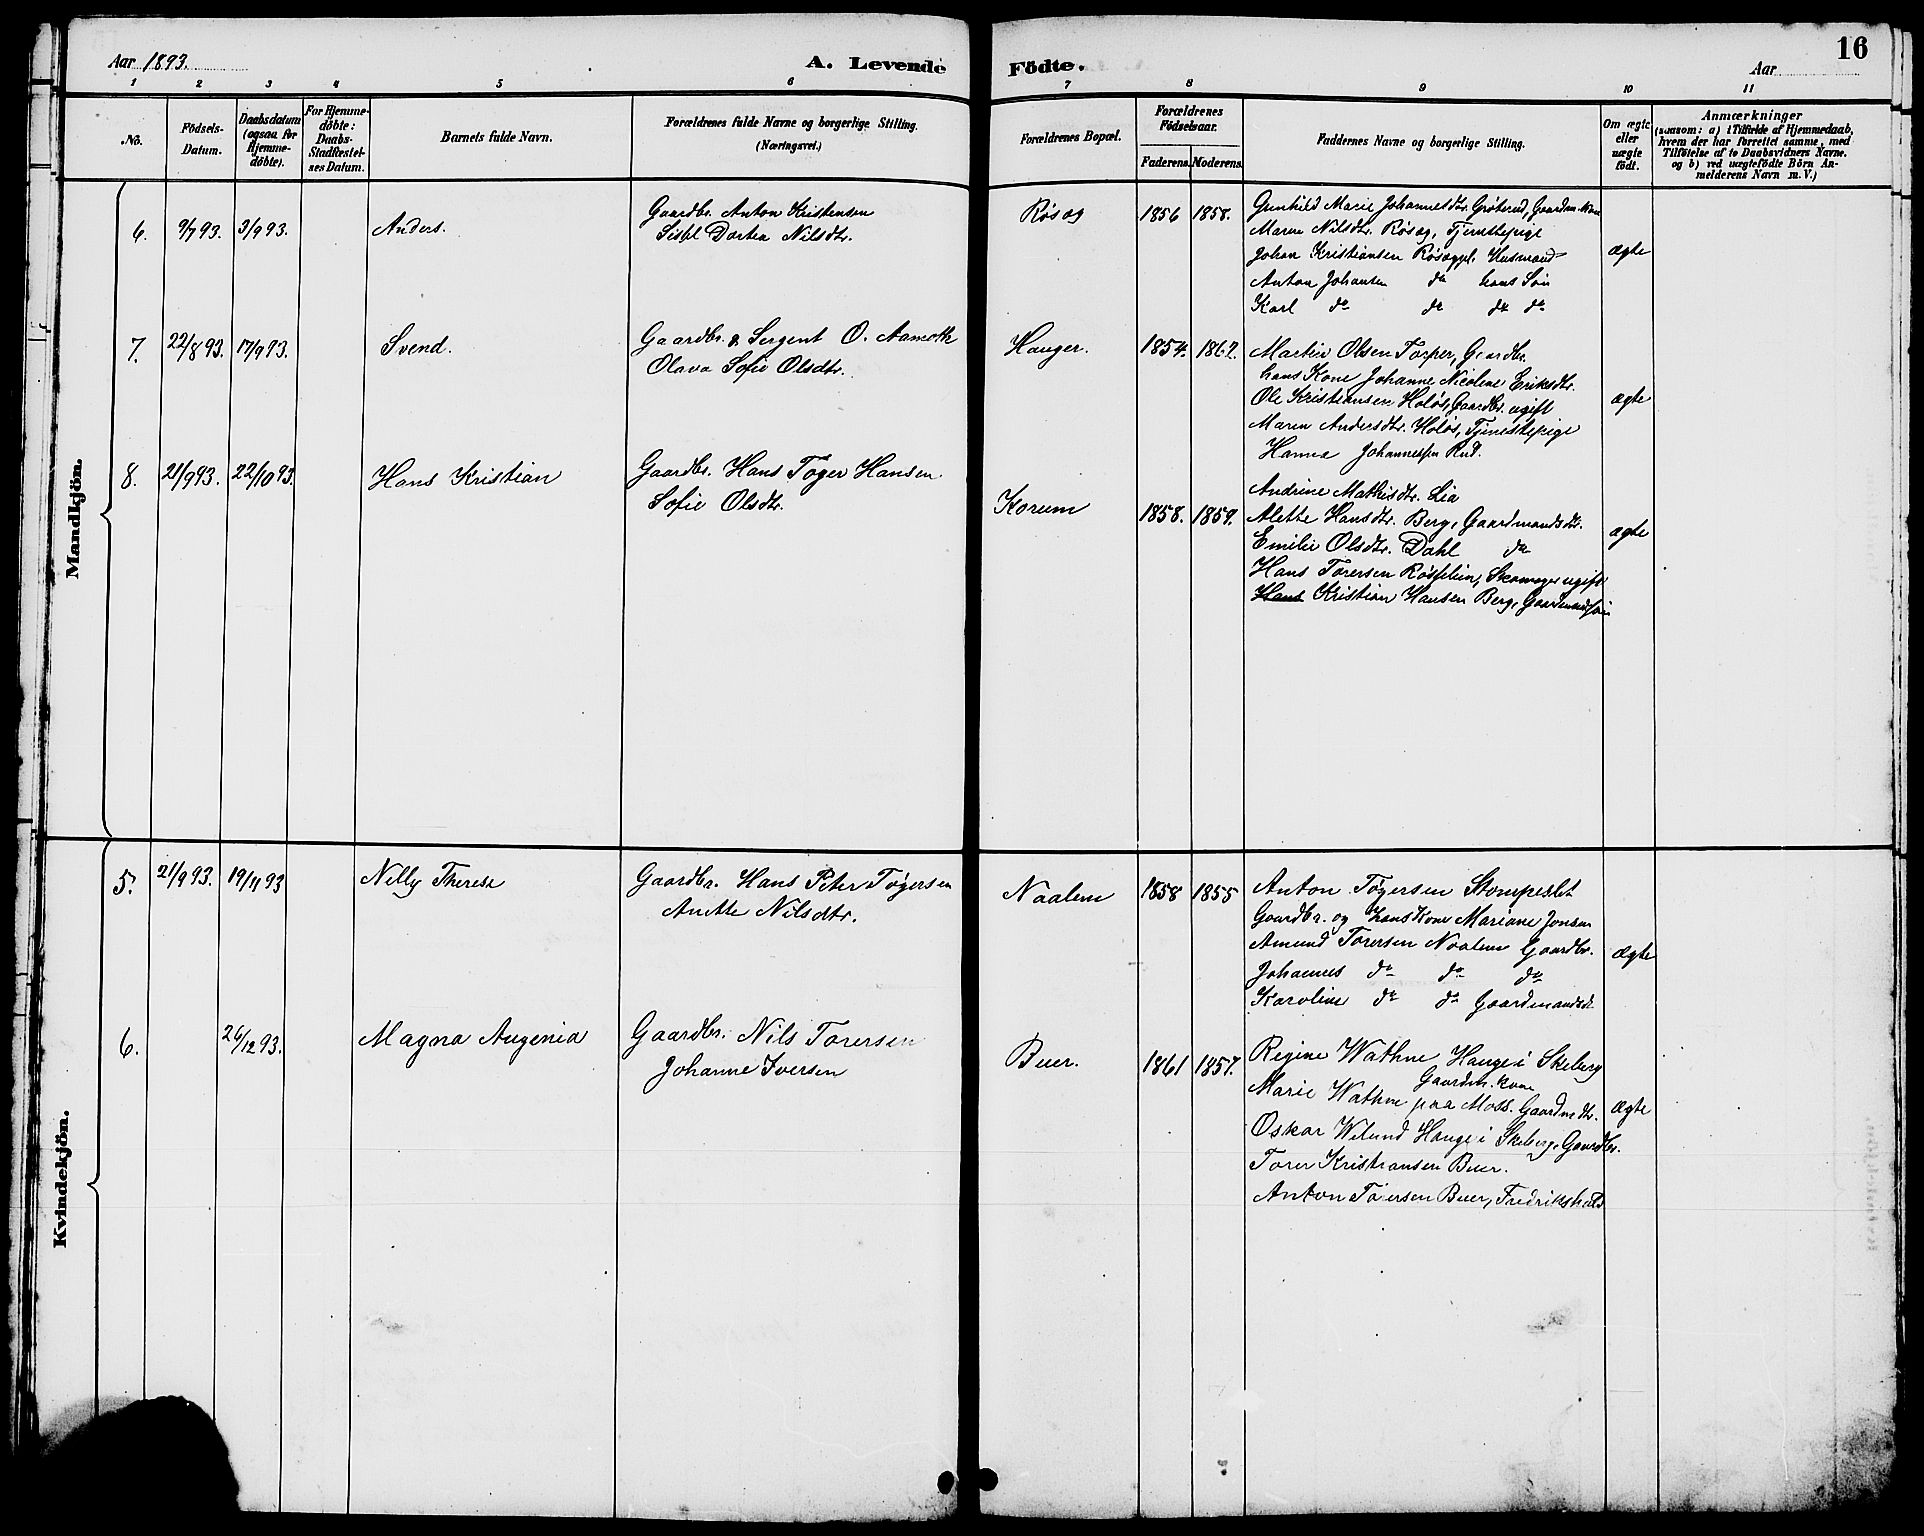 Aar 1893.
A. Levende Födte.
Aar
16
1 2 3 4 5 6 7 8 9 10 11
No.
Födsels-Datum.
Daabsdatum (ogsaa for Hjemmedöbte).
For Hjemmedöbte: Daabs-Stadfæstelses Datum.
Barnets fulde Navn.
Forældrenes fulde Navne og borgerlige Stilling.
(Næringsvei.)
Forældrenes Bopæl.
Forældrenes Födselsaar.
Faderens. Moderens.
Faddernes Navne og borgerlige Stilling.
Om ægte eller uægte födt.
Anmærkninger
(saasom: a) i Tilfælde af Hjemmedaab, hvem der har forrettet samme, med Tilföielse af to Daabsvidners Navne. og b) ved uægtefödte Börn Anmelderens Navn m. V.)
Mandkjön.
6. 9/7 93. 3/9 93. Anders.
Gaardbr. Anton Kristensen
Sissel Dortea Nilsdtr.
Røsæg 1856 1858.
Gunhild Marie Johannesdtr. Grøterud, Gaardm. Kone
Maren Nilsdtr. Røsæg, Tjenestepige
Johan Kristiansen Røsægpl. Husmand
Anton Johansen do hans Søn
Karl do do do do
ægte
7. 22/8 93. 17/9 93. Svend.
Gaardbr. & Sergent O. Aamoth
Olava Sofie Olsdtr.
Hauger. 1854. 1862.
Martin Olsen Torper, Gaardbr.
hans Kone Johanne Nicoline Eriksdtr.
Ole Kristiansen Holøs, Gaardbr. ugift
Maren Andersdtr. Holøs, Tjenestepige
Hanna Johannessen Rud.
ægte
8. 21/9 93. 22/10 93. Hans Kristian
Gaardbr. Hans Toger Hansen
Sofie Olsdtr.
Korum 1858. 1859.
Andrine Mathisdtr. Lia
Alette Hansdtr. Berg, Gaardmandsdtr.
Emilie Olsdtr. Dahl do
Hans Torersen Røsselien, Skomager ugift
Hans Kristian Hansen Berg, Gaardmandssøn
ægte
Kvindekjön.
5. 21/9 93. 19/11 93 Nelly Therese
Gaardbr. Hans Peter Tøgersen
Anette Nilsdtr.
Naalem 1858 1855
Anton Tøgersen Stompeslet
Gaardbr. og hans Kone Mariane Jonsen
Amund Torersen Naalem Gaardbr.
Johannes do do do
Karoline do do Gaardmandsd.
ægte
6. 26/12 93. Magna Augenia
Gaardbr. Nils Torersen
Johanne Iversen
Buer. 1861 1857.
Regine Wathne Hauge i Skeberg
Gaardbr. Kone
Marie Wathne paa Moss. Gaardmdtr.
Oskar Welund Hauge i Skeberg, Gaardbr.
Torer Kristiansen Buer.
Anton Torersen Buer, Fredrikshald
ægte